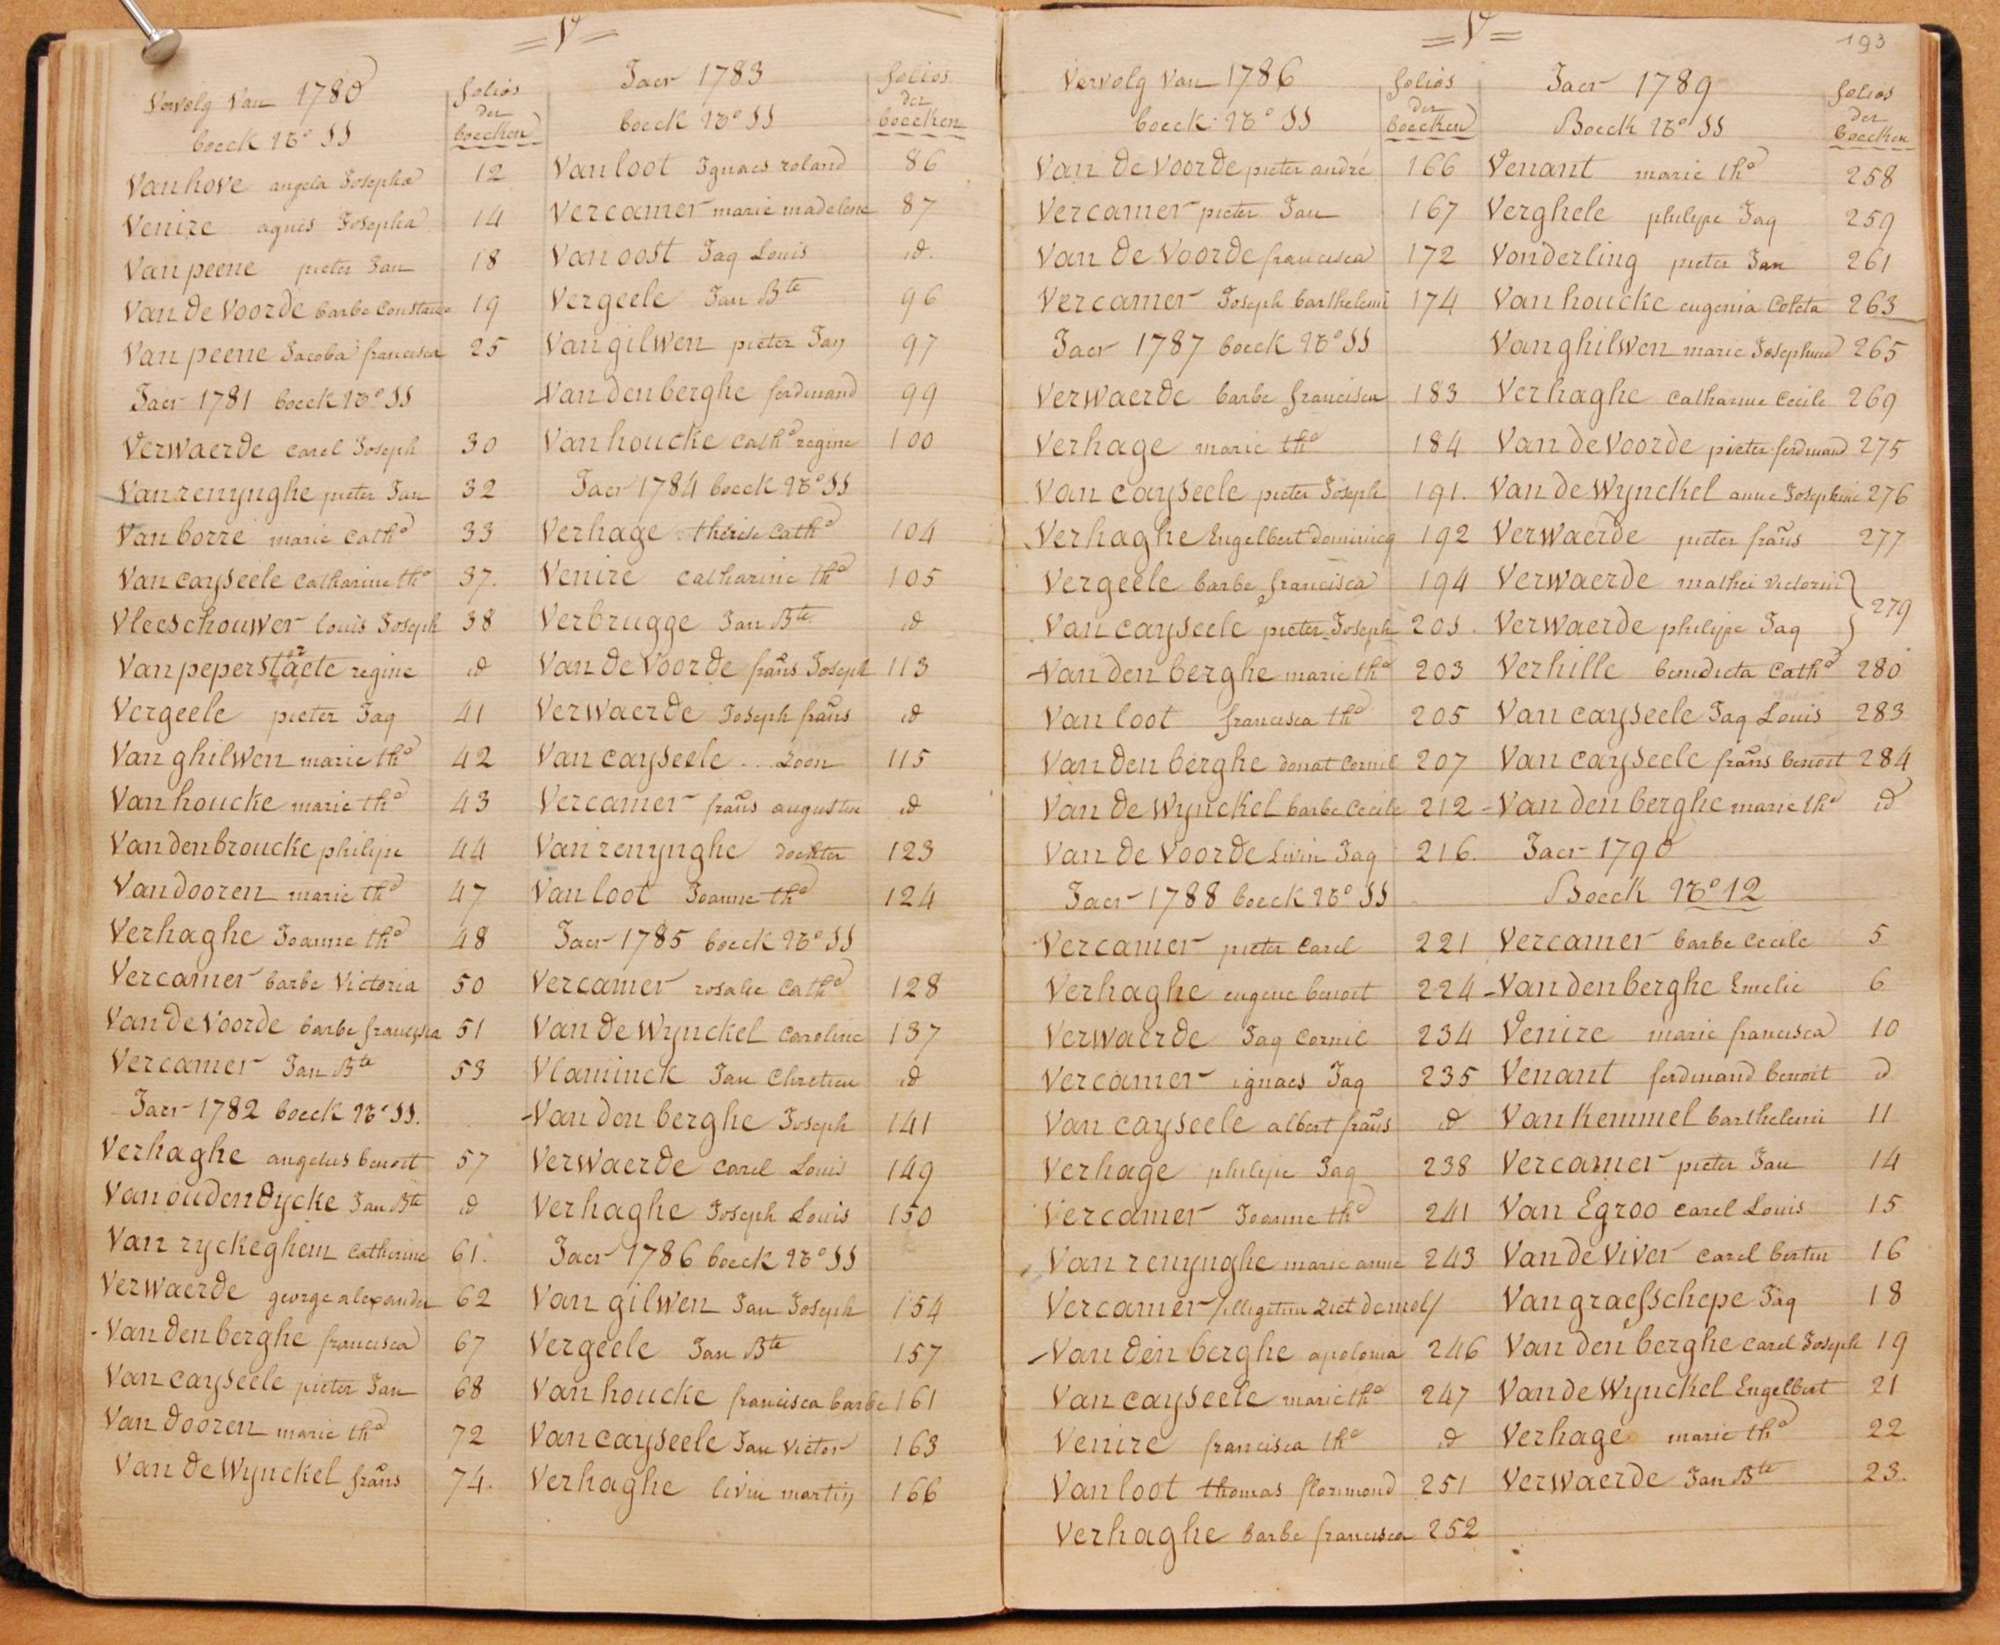 =V=
Vervolg van 1780
boeck No 11
folios
der
boecken
Vanhove angela Josepha 12
Venire agnis Josepha 14
Vanpeene pieter Jan 18
Van de Voorde barbe Constance 19
Van peene Jacoba francisca 25
Jaer 1781 boeck No 11
Verwaerde carel Joseph 30
Vanrenynghe pieter Jan 32
Vanborre marie catha 33
Vancayseele catharine tha 37.
Vleeschouwer louis Joseph 38
Vanpeperstraete regine id
Vergeele pieter Jaq 41
Vanghilwen marie tha 42
Vanhoucke marie tha 43
Vandenbroucke philipe 44
Vandooren marie tha 47
Verhaghe Joanne tha 48
Vercamer barbe Victoria 50
Van de Voorde barbe francisca 51
Vercamer Jan Bte 53
Jaer 1782 boeck No 11.
Verhaghe angelus benoit 57
Van oudendycke Jan Bte id
Van ryckeghem catherine 61.
Verwaerde george alexander 62
Vandenberghe francisca 67
Vancayseele pieter Jan 68
Van dooren marie tha 72
Van de Wynckel frans 74.
Jaer 1783
boeck No 11
folios
der
boecken
Vanloot Ignaes roland 86
Vercamer marie madelene 87
Vanoost Jaq Louis id.
Vergeele Jan Bte 96
Vangilwen pieter Jan 97
Vandenberghe ferdinand 99
Vanhoucke catha regine 100
Jaer 1784 boeck No 11
Verhage therese catha 104
Venire catharine tha 105
Verbrugge Jan Bte id
Van de Voorde frans Joseph 113
Verwaerde Joseph frans id
Vancayseele .. Loon 115
Vercamer frans augustin id
Vanrenynghe dochter 123
Vanloot Joanne tha 124
Jaer 1785 boeck No 11
Vercamer rosalie catha 128
Van de Wynckel caroline 137
Vlaminck Jan Chretien id
Van den berghe Joseph 141
Verwaerde carel Louis 149
Verhaghe Joseph Louis 150
Jaer 1786 boeck No 11
Van gilwen Jan Joseph 154
Vergeele Jan Bte 157
Vanhoucke francisca barbe 161
Vancayseele Jan Victor 163
Verhaghe livin martin 166
=V=
193
Vervolg van 1786
boeck No 11
folios
der
boecken
Van de Voorde pieter andré 166
Vercamer pieter Jan 167
Van de Voorde francisca 172
Vercamer Joseph barthelemi 174
Jaer 1787 boeck No 11
Verwaerde barbe francisca 183
Verhage marie tha 184
Van cayseele pieter Joseph 191.
Verhaghe Engelbert dominicq 192
Vergeele barbe francisca 194
Van cayseele pieter Joseph 201.
Van den berghe marie tha 203
Van loot francisca tha 205
Van den berghe donat cornil 207
Van de Wynckel barbe Cecile 212
Van de Voorde Livin Jaq 216.
Jaer 1788 boeck No 11
Vercamer pieter carel 221
Verhaghe eugene benoit 224
Verwaerde Jaq Cornil 234
Vercamer ignaes Jaq 235
Van cayseele albert frans id
Verhage philipe Jaq 238
Vercamer Joanne tha 241
Van renynghe marie anne 243
Vercamer /illigitim ziet demol/
Van den berghe apolonia 246
Van cayseele marie tha 247
Venire francisca tha id
Vanloot thomas florimond 251
Verhaghe barbe francisca 252
Jaer 1789
Boeck No 11
folios
der
boecken
Venant marie tha 258
Verghele philipe Jaq 259
Vonderling pieter Jan 261
Vanhoucke eugenia Coleta 263
Vanghilwen marie Josephine 265
Verhaghe catharine Cecile 269
Van de Voorde pieter ferdinand 275
Van de Wynckel anne Josephine 276
Verwaerde pieter frans 277
Verwaerde mathei victorin }
Verwaerde philipe Jaq } 279
Verhille benedicta catha 280
Van cayseele Jaq Louis 283
Van cayseele frans benoit 284
Van den berghe marie tha id
Jaer 1790
Boeck No 12
Vercamer barbe Cecile 5
Vandenberghe Emelie 6
Venire marie francisca 10
Venant ferdinand benoit id
Vankemmel barthelemi 11
Vercamer pieter Jan 14
Van Egroo carel Louis 15
Van de Viver carel bertin 16
Vangraefschepe Jaq 18
Van den berghe carel Joseph 19
Van de Wynckel Engelbert 21
Verhage marie tha 22
Verwaerde Jan Bte 23.